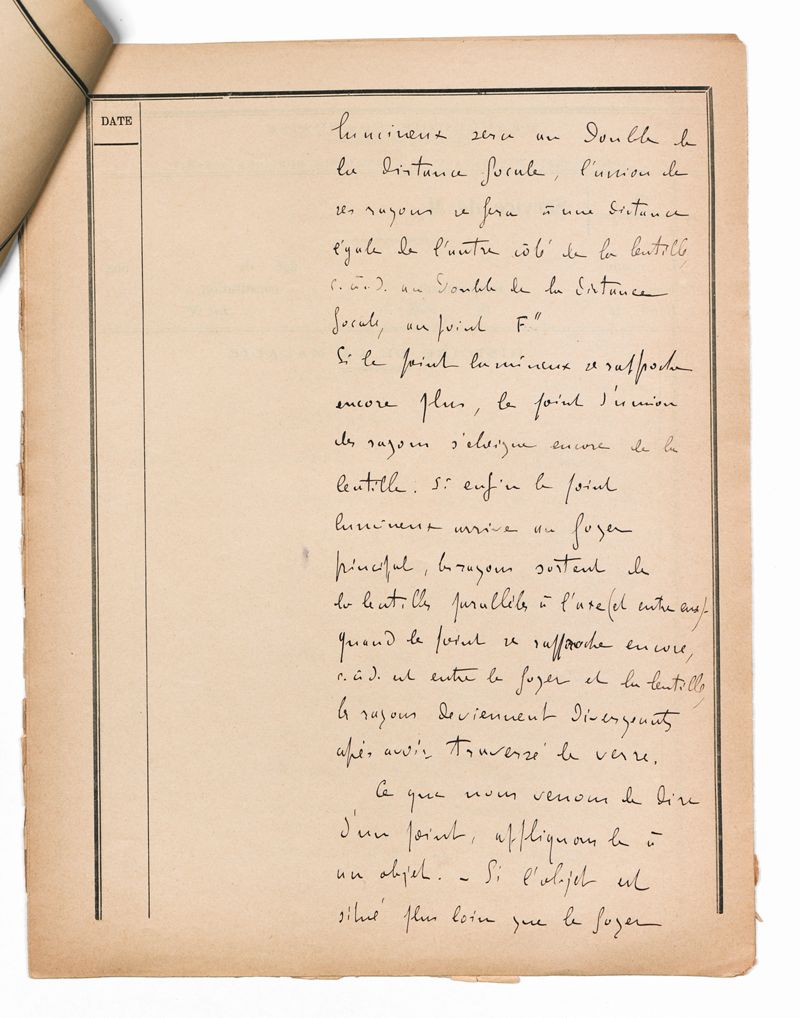 DATE
lumineux sera au Double de
la distance focale, l'union de
ces rayons se fera à une distance
égale de l'autre côté de la lentille,
c.à.d. au Double de la distance
focale, au point F"
Si le point lumineux se rapproche
encore plus, le point d'union
des rayons s'eloigne encore de la
lentille. Si enfin le point
lumineux arrive au foyer
principal, les rayons sortent de
la lentille parallèles à l'axe (et entre eux)-
quand le point se rapproche encore,
c.à.d. est entre le foyer et la lentille,
les rayons deviennent Divergents
après avoir traversé le verre.
Ce que nous venons de dire
d'un point, appliquons le à
un objet. - Si l'objet est
situé plus loin que le foyer